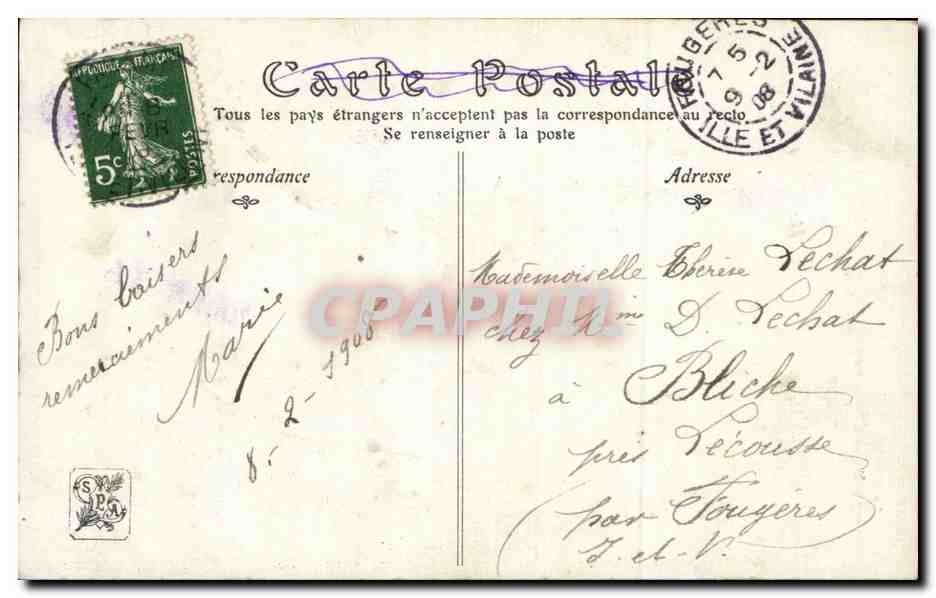 Carte Postale
Tous les pays étrangers n'acceptent pas la correspondance au recto
Se renseigner à la poste
RÉPUBLIQUE FRANÇAISE
5c
POSTES
FOUGERES
7 5
9 -2
08
ILLE ET VILAINE
respondance
Adresse
Bons baisers
remerciements
Marie
8-2-1908
Mademoiselle Thérèse Lechat
chez Mme D. Lechat
à Bliche
près Lécousse
(par Fougères)
I-et-V.
SPA
CPAPHIL